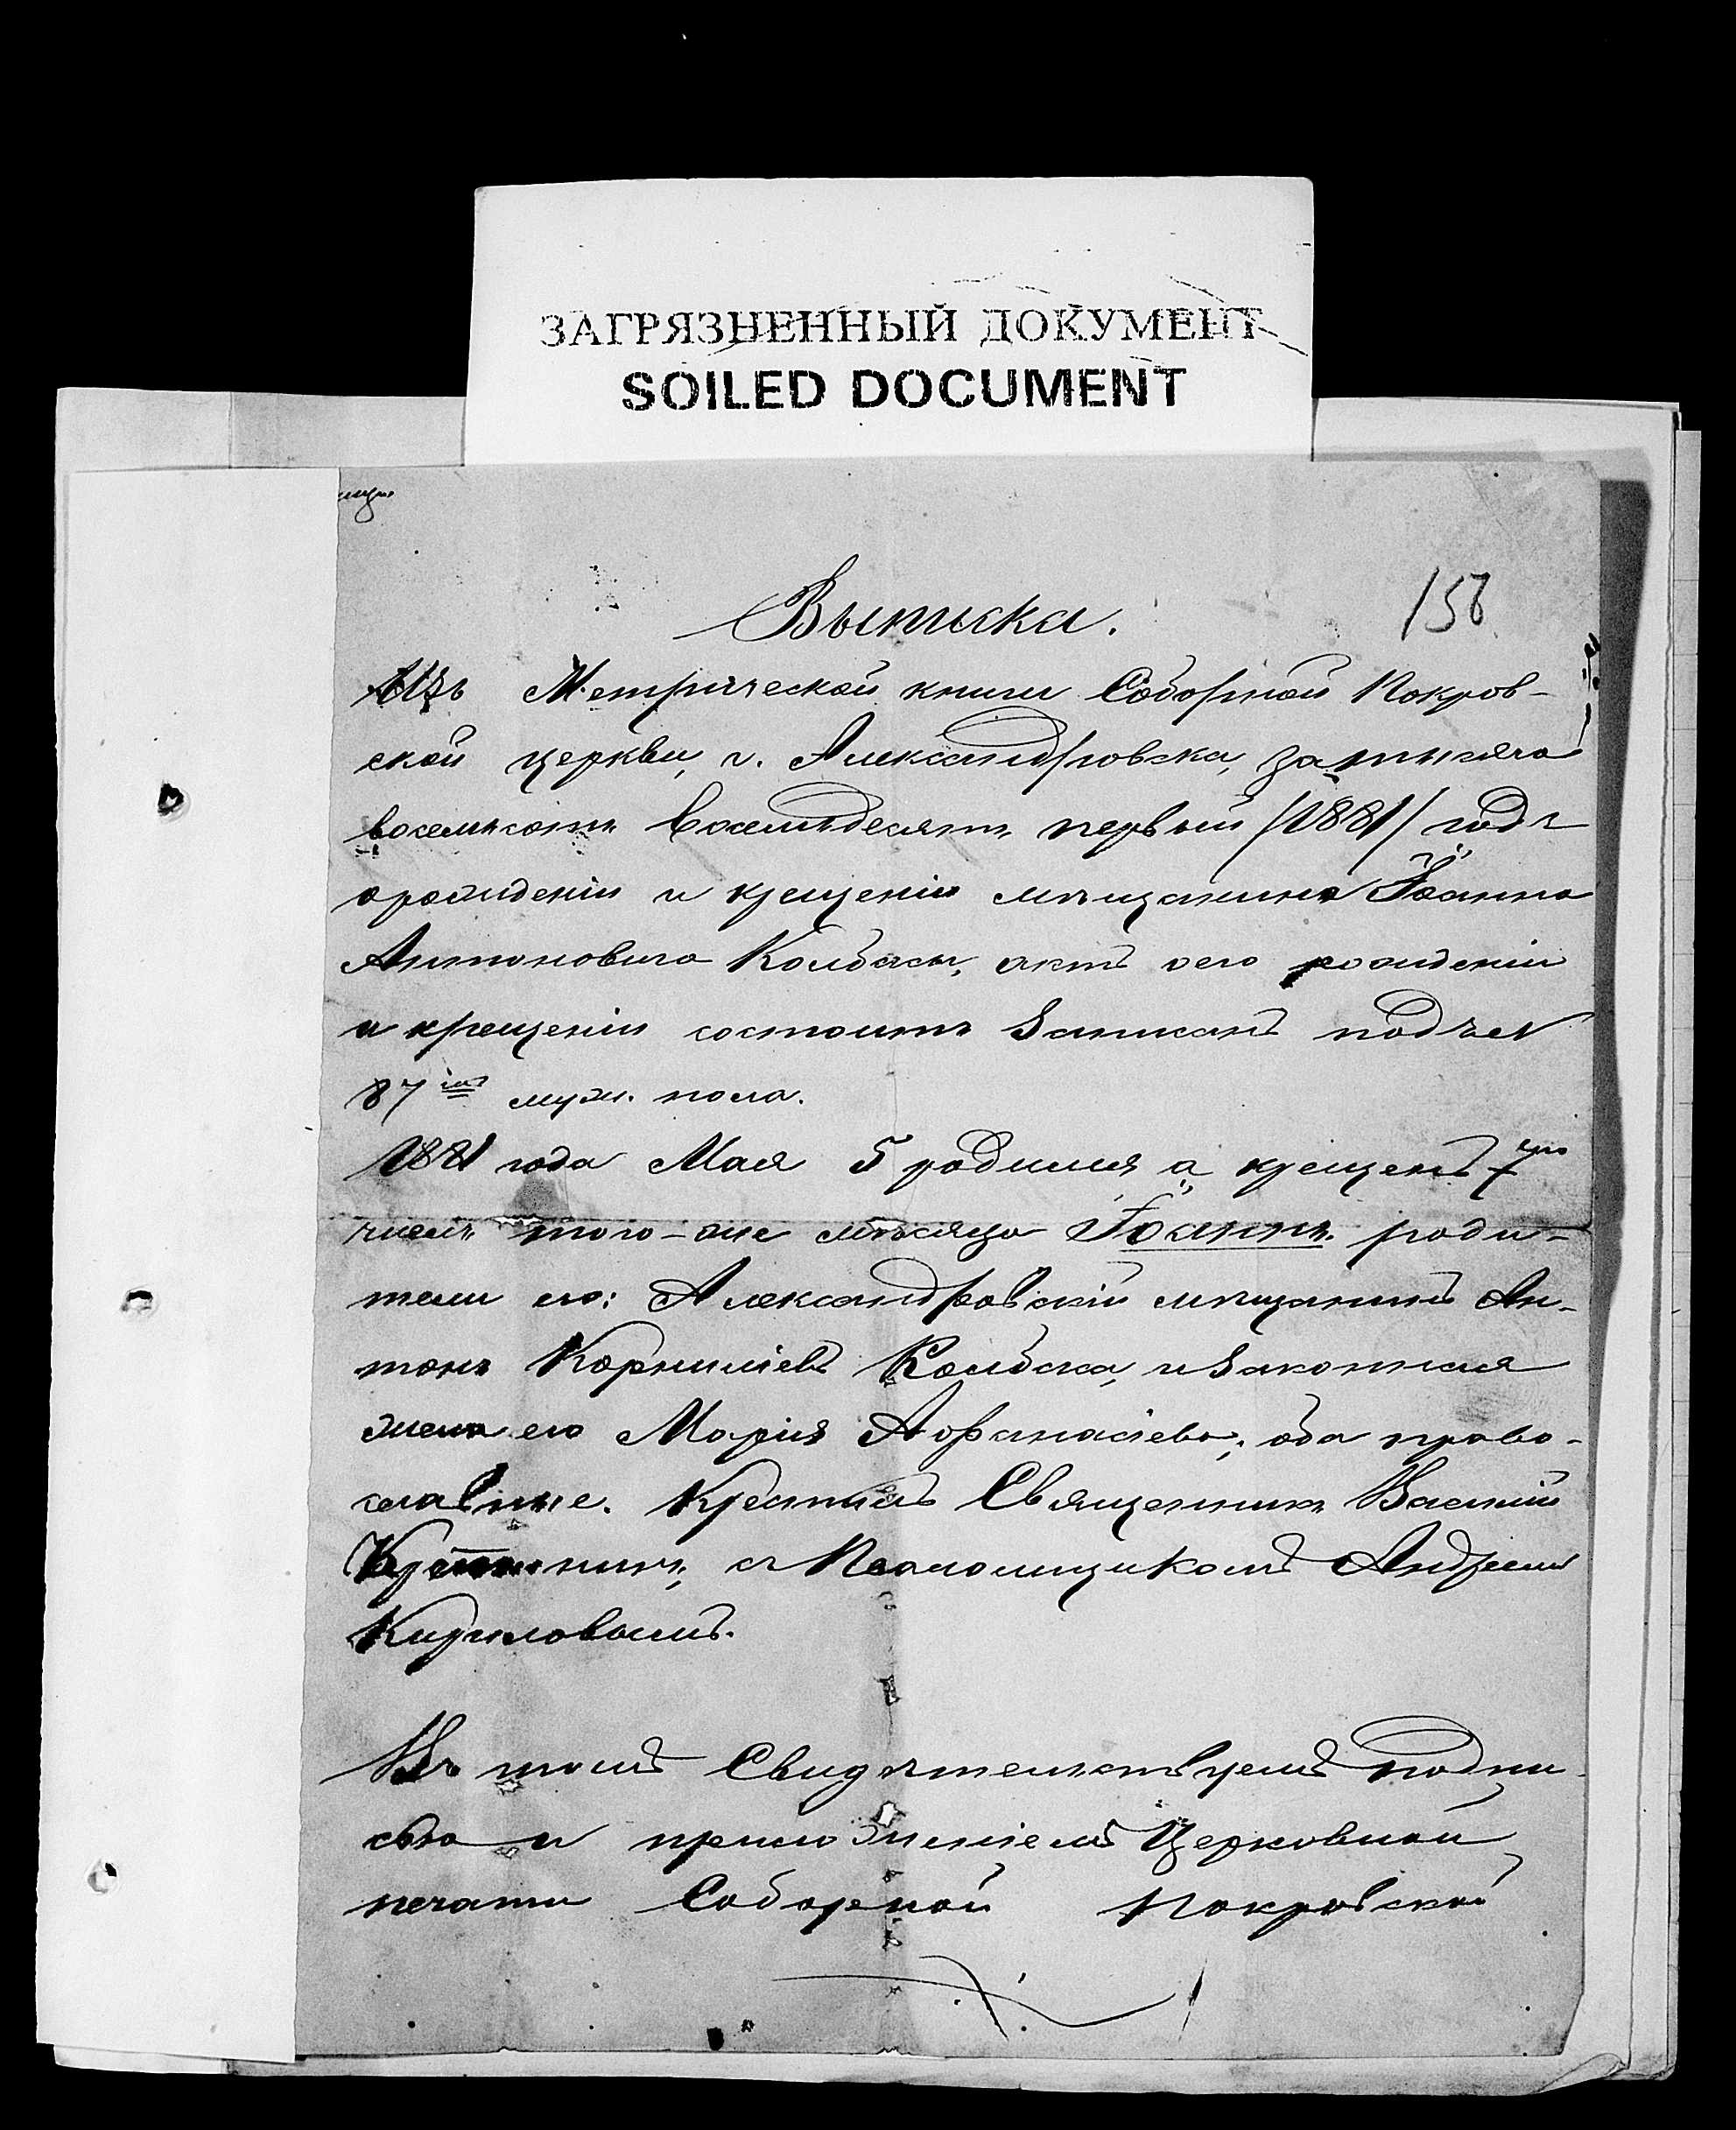 ЗАГРЯЗНЕННЫЙ ДОКУМЕНТ
SOILED DOCUMENT
158
Выписка.
Изъ Метрической книги Соборной Покров-
ской церкви, г. Александровска, за тысяча
восемьсотъ восемьдесятъ первый /1881/ годъ
о рожденіи и крещеніи мѣщанина Іоанна
Антоновича Колбасы, актъ о его рожденіи
и крещеніи состоитъ записанъ подъ №
87 муж. пола.
1881 года Мая 5 родился а крещенъ 7го
числа того-же мѣсяца Іоаннъ. роди-
тели его: Александровскій мѣщанинъ Ан-
тонъ Корниліевъ Колбаса, и законная
жена его Марія Афанасіева, оба право-
славные. Крестилъ Священникъ Василій
съ Псаломщикомъ Андреемъ
Кириловымъ.
Въ томъ Свидѣтельствуемъ подпи-
сью и приложеніемъ Церковной
печати Соборной Покровской